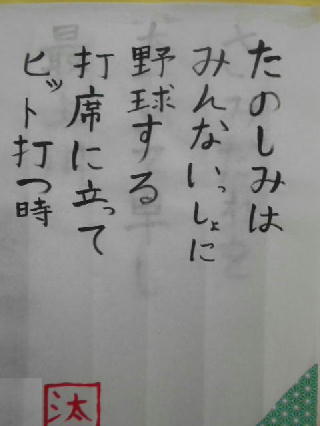 たのしみは
みんないっしょに
野球する
打席に立って
ヒット打つ時
汰